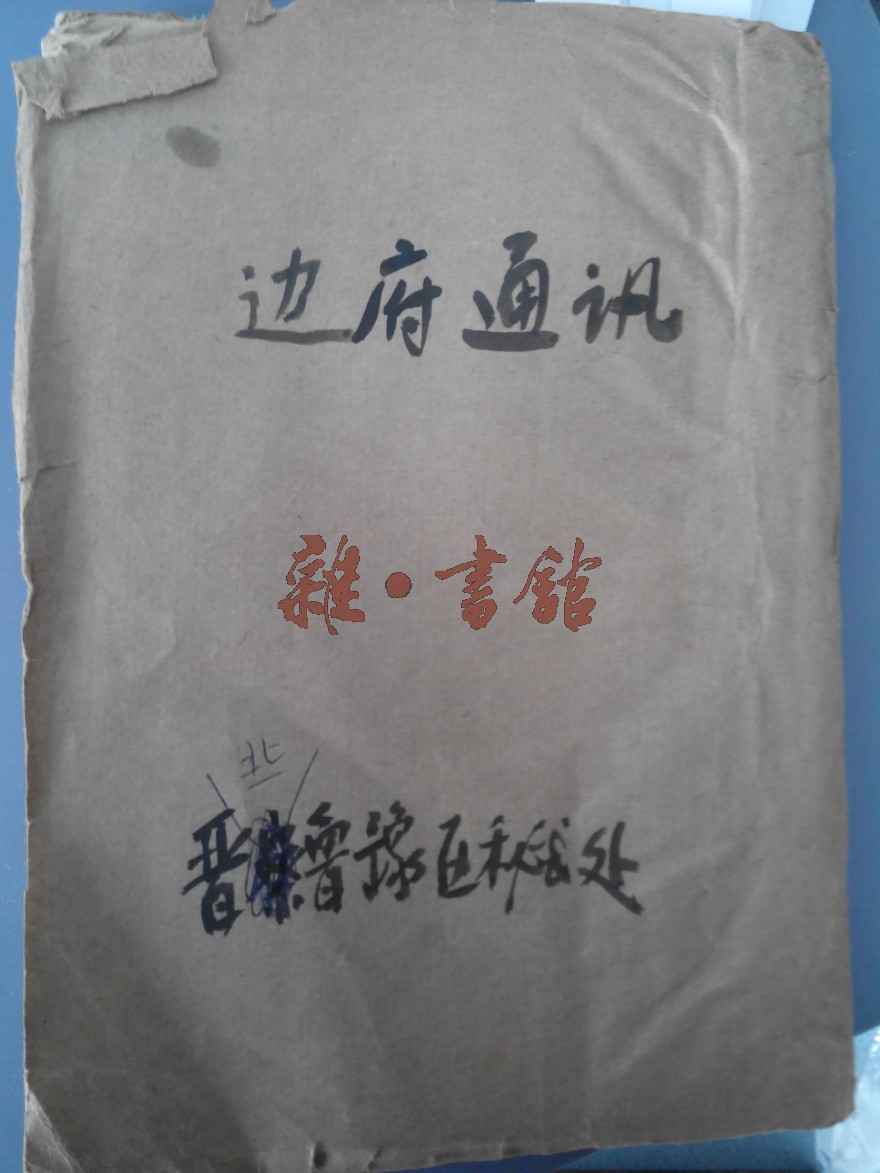 边府通讯
雜·書館
北
晋鲁豫区秘书处